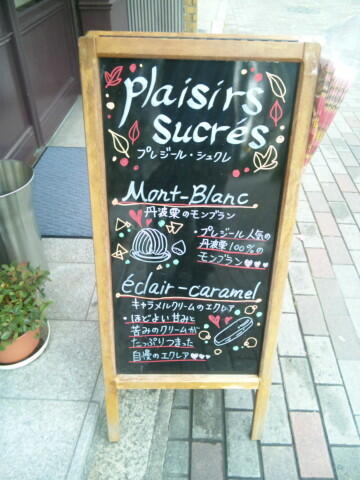 plaisirs
sucrés
プレジール・シュクレ
Mont-Blanc
丹波栗のモンブラン
・プレジール人気の
丹波栗100%の
モンブラン♥♥♥
éclair-caramel
キャラメルクリームのエクレア
・ほどよい甘みと
苦みのクリームが
たっぷりつまった
自慢のエクレア♥♥♥